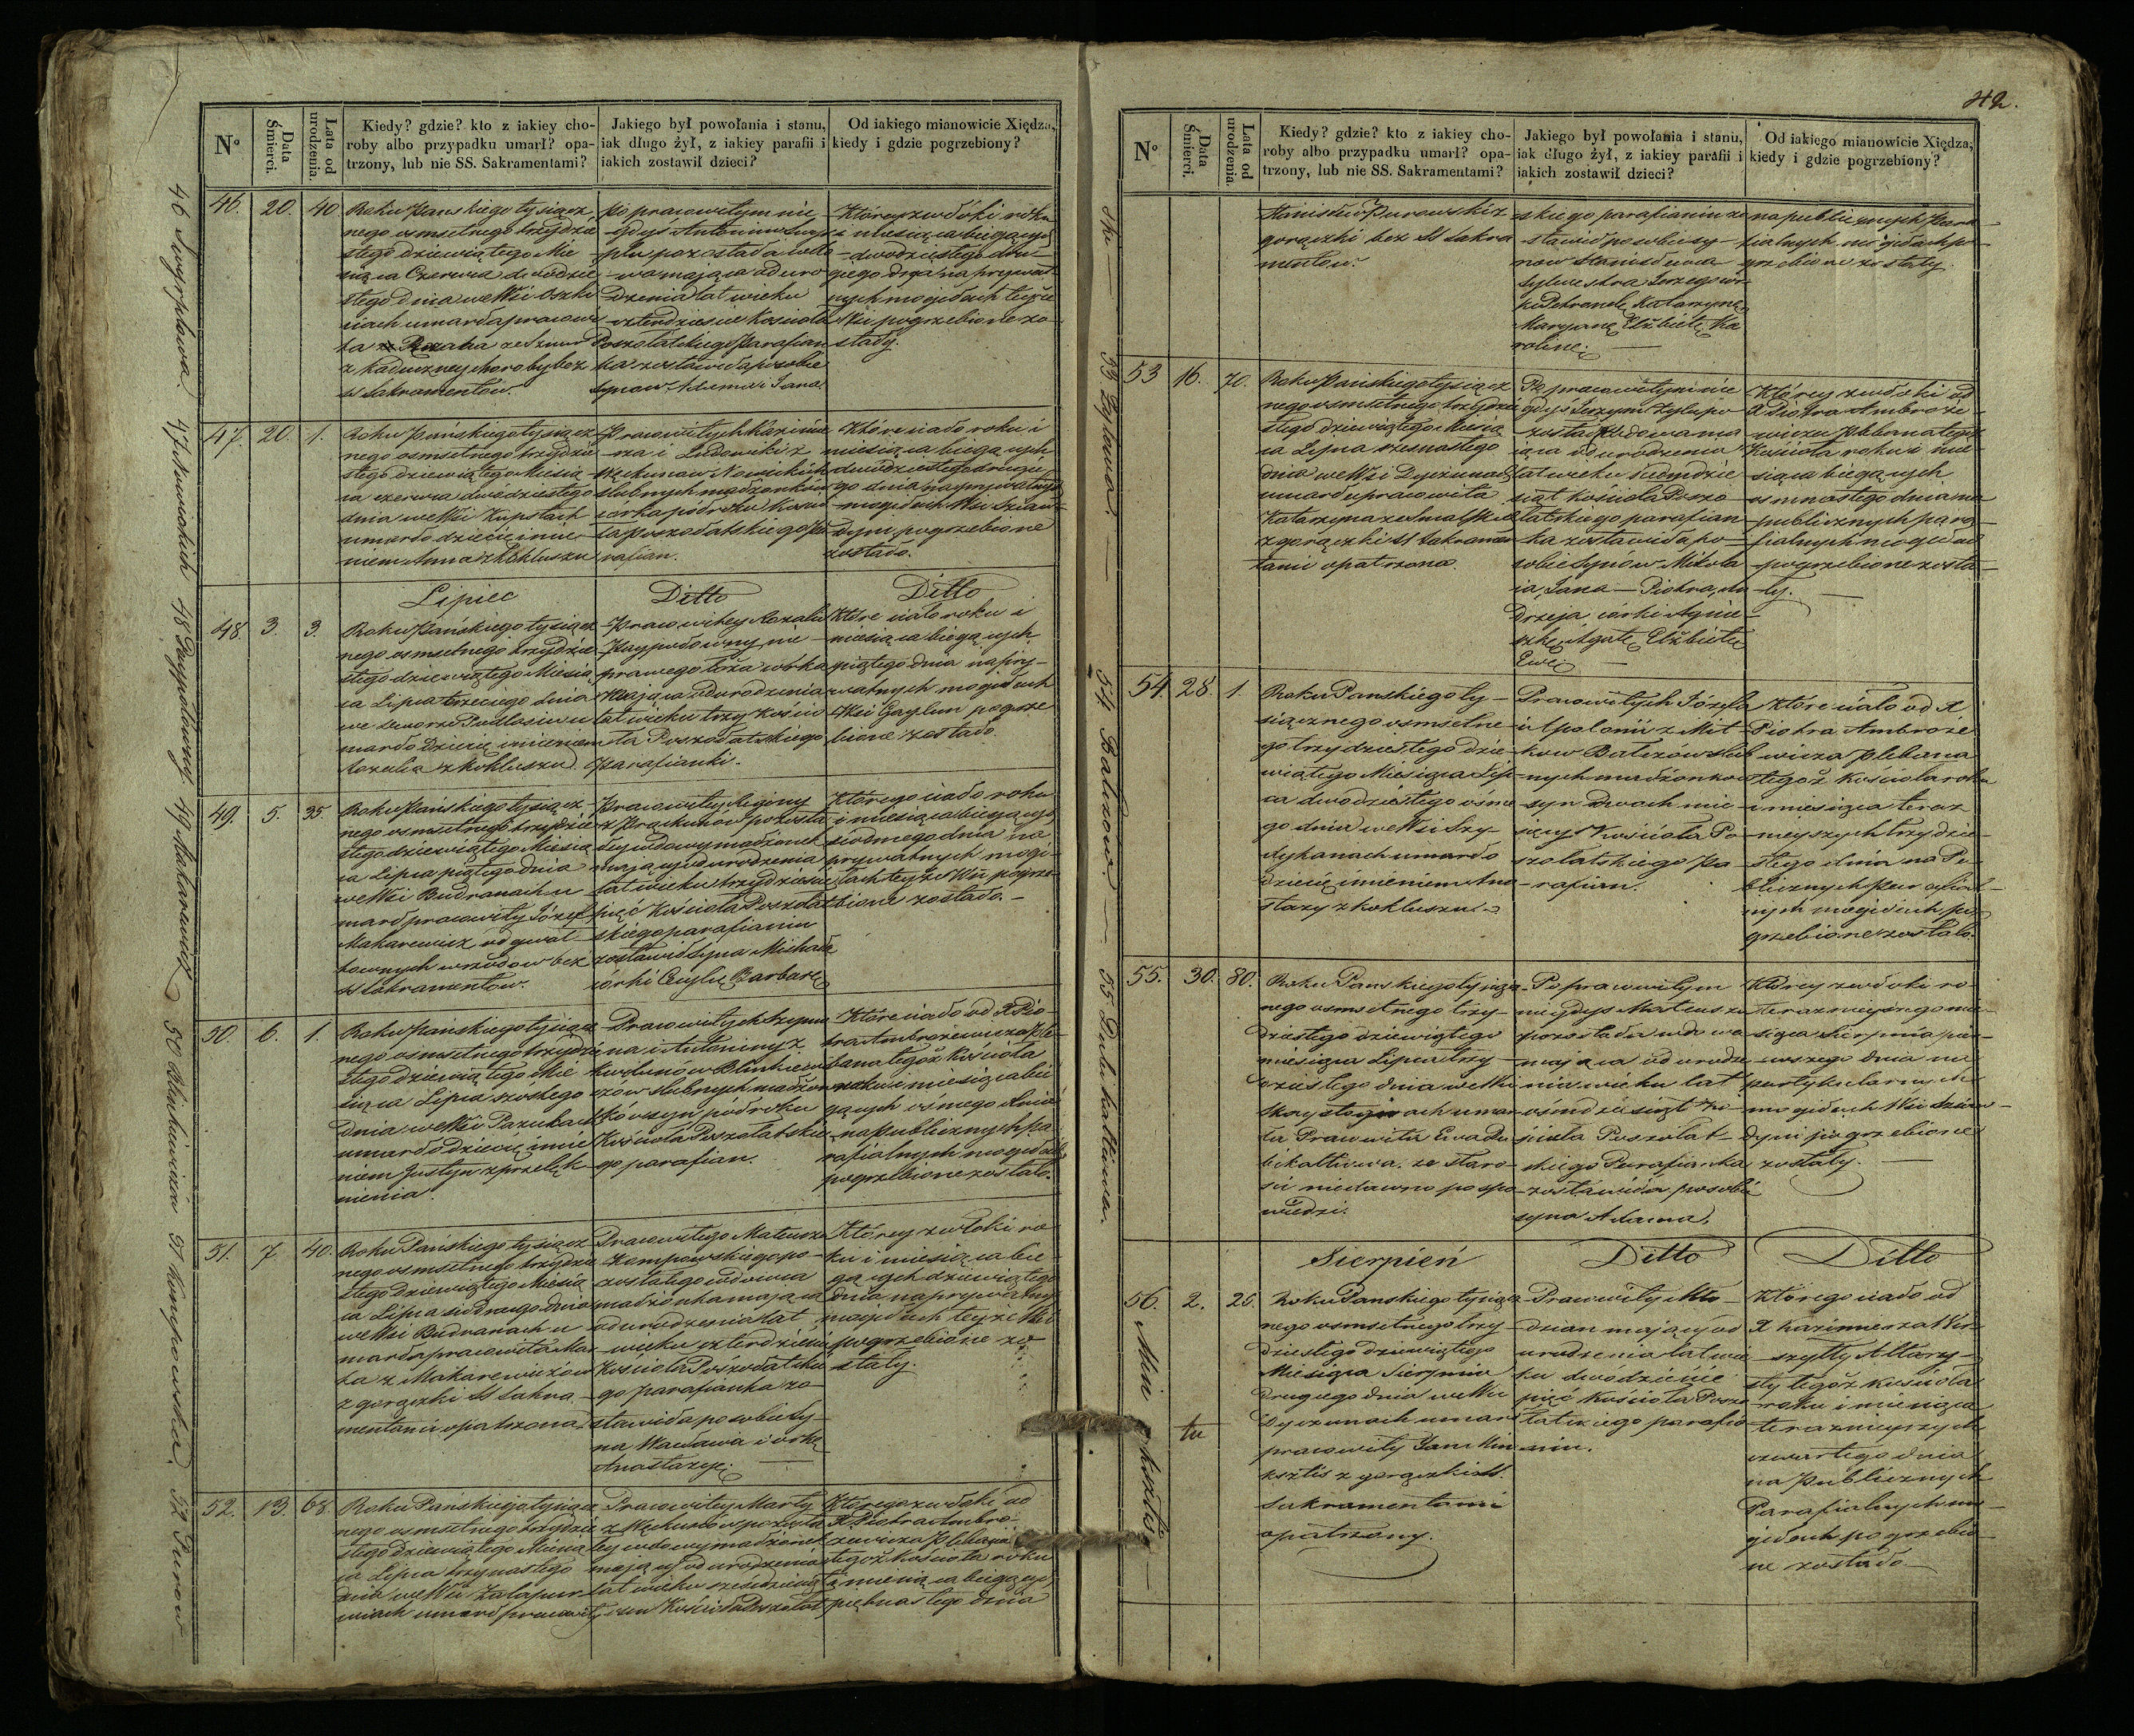 42.
Nº
Data Śmierci.
Lata od urodzenia.
Kiedy? gdzie? kto z iakiey cho-
roby albo przypadku umarł? opa-
trzony, lub nie SS. Sakramentami?
Jakiego był powołania i stanu,
iak długo żył, z iakiey parafii i
iakich zostawił dzieci?
Od iakiego mianowicie Xiędza,
kiedy i gdzie pogrzebiony?
46. 20. 40
Roku Pańskiego tysiącz
nego osmsetnego trzydzie
stego dziewiątego Mie
siąca Czerwca dwódzie
stego dnia we Wsi
niach umarła pracowi
ta
z kaduczney choroby bez
SS Sakramentów.
Po pracowitym nie
gdyś Antonim
pozostała wdo
wa mająca od uro
dzenia lat wieku
czterdzieście Kościoła
Poszołatskiego Parafian
ka zostawiła po sobie
synow Adama i Jana
Którey zwłoki roku
i miesiąca biegących
dwodziestego dru
giego dnia na prywat
nych mogiłach teyże
Wsi pogrzebione zo
stały.
47. 20. 1.
Roku Pańskiego tysiącz
nego osmsetnego trzydzie
stego dziewiątego Miesią
ca czerwca dwódziestego
dnia we Wsi Kupstach
umarło dziecie imie
niem Anna z Kokluszu
Pracowitych Kazimie
rza i Ludowiki z
Nowickich
ślubnych małżonków
corka pół roku Kościo
ła Poszołatskiego Pa
rafian.
Które ciało roku i
miesiąca biegących
dwódziestego drugie
go dnia na prywatnych
mogiłach Wsi
pogrzebione
zostało.
Lipiec
Ditto
Ditto
48 3. 3.
Roku Pańskiego tysiącz
nego osmsetnego trzydzie
stego dziewiątego Miesią
ca Lipca trzeciego dnia
we dworze Podlasiu u
marło Dziecię imieniem
Rozalia z Kokluszu
Pracowitey Rozalii
nie
prawego łoża córka
mająca od urodzenia
lat wieku trzy Kościo
ła Poszołatskiego
Parafianki.
Które ciało roku i
miesiąca biegących
piątego dnia na pry
watnych mogiłach
Wsi pogrze
bione zostało.
49. 5. 35
Roku Pańskiego tysiącz
nego osmsetnego trzydzie
stego dziewiątego Miesią
ca Lipca piątego dnia
we Wsi Budranach u
marł pracowity Józef
Makarewicz od gwał
townych wrzodow bez
SS Sakramentow.
Pracowitey Reginy
z pozosta
łey wdowy małżonek
mający od urodzenia
lat wieku trzydzieście
pięć Kościoła Poszołat
skiego parafianin
zostawił syna Michała
córki Cecylię Barbarę
Którego ciało roku
i miesiąca biegących
siódmego dnia na
prywatnych mogi
łach teyże Wsi pogrze
bione zostało.
50. 6. 1.
Roku Pańskiego tysiącz
nego osmsetnego trzydzie
stego dziewiątego Mie
siąca Lipca szóstego
dnia we Wsi Pazukach
umarło dziecie imie
niem Justyn z przelęk
nienia.
Pracowitych Szymo
na i Antoniny z
ślubnych małżon
ków syn pół roku
Kościoła Poszołatskie
go parafian.
Które ciało od X Pio
tra Ambrożewicza Ple
bana tegoż Kościoła
roku i miesiąca bie
gących ośmego dnia
na publicznych pa
rafialnych mogiłach
pogrzebione zostało.
51. 7 40.
Roku Pańskiego tysiącz
nego osmsetnego trzydzie
stego dziewiątego Miesią
ca Lipca siódmego dnia
we Wsi Budranach u
marła pracowita Mar
ta z Makarewiczów
z gorączki SS Sakra
mentami opatrzona
Pracowitego Mateusza
Kompowskiego po
zostałego wdowca
małżonka mająca
od urodzenia lat
wieku czterdzieście
Kościoła Poszołatskie
go parafianka zo
stawiła po sobie sy
na Wacława i córkę
Anastazyę.
Którey zwłoki ro
ku i miesiąca bie
gących dziewiątego
dnia na prywatnych
mogiłach teyże Wsi
pogrzebione zo
stały.
52. 13. 68.
Roku Pańskiego tysiącz
nego osmsetnego trzydzie
stego dziewiątego Miesią
ca Lipca trzynastego
dnia we Wsi
umarł pracowity
Pracowitey Marty
z pozosta
łey wdowy małżonek
mający od urodzenia
lat wieku sześćdziesiąt
ośm Kościoła Poszołat
Którego zwłoki od
X Piotra Ambro
żewicza Plebana
tegoż Kościoła roku
i miesiąca biegących
piętnastego dnia
47 Nowickich
49 Makarewicz
51 Kompowska
52 Purow
Nº
Data Śmierci.
Lata od urodzenia.
Kiedy? gdzie? kto z iakiey cho-
roby albo przypadku umarł? opa-
trzony, lub nie SS. Sakramentami?
Jakiego był powołania i stanu,
iak długo żył, z iakiey parafii i
iakich zostawił dzieci?
Od iakiego mianowicie Xiędza,
kiedy i gdzie pogrzebiony?
Stanisław Purowski z
gorączki bez SS Sakra
mentow.
skiego parafianin zo
stawił po sobie sy
now Stanisława
Sylwestra Jerzego cor
ki Petronelę Katarzynę
Maryanę Elżbietę Ka
rolinę.
na publicznych Para
fialnych mogiłach po
grzebione zostały.
53 16. 70.
Roku Pańskiego tysiącz
nego osmsetnego trzydzie
stego dziewiątego Miesią
ca Lipca szesnastego
dnia we Wsi Dyczunach
umarła pracowita
Katarzyna
z gorączki SS Sakramen
tami opatrzona.
Po pracowitym nie
gdyś Jerzym Zyla po
została wdowa ma
jąca od urodzenia
lat wieku siedmdzie
siąt Kościoła Poszo
łatskiego parafian
ka zostawiła po
sobie synów Mikoła
ia, Jana Piotra, An
drzeja, córki Agnie
szkę Agatę Elżbietę
Ewę
Którey zwłoki od
X Piotra Ambroże
wicza Plebana tegoż
Kościoła roku i mie
siąca biegących
osmnastego dnia na
publicznych para
fialnych mogiłach
pogrzebione zosta
ły.
54. 28. 1.
Roku Panskiego ty
siącznego osmsetne
go trzydziestego dzie
wiątego Miesiąca Lip
ca dwodziestego ośme
go dnia we Wsi Szy
dykanach umarło
dziecię imieniem Ana
stazy z kokluszu.
Pracowitych Józefa
i Apolonii z Mit
kow Balizów ślub
nych małżonków
syn dwoch mie
sięcy Kościoła Po
szołatskiego Pa
rafian.
Które ciało od X
Piotra Ambroże
wicza Plebana
tegoż Kościoła roku
i miesiąca teraz
nieyszych trzydzie
stego dnia na Pu
blicznych Parafial
nych mogiłach po
grzebione zostało.
55. 30. 80.
Roku Panskiego tysiącz
nego osmsetnego trzy
dziestego dziewiątego
miesiąca Lipca trzy
dziestego dnia we Wsi
umar
ła Pracowita Ewa
ze staro
ści niedawno po spo
wiedzi.
Po pracowitym
niegdys Mateuszu
pozostała wdowa
mająca od urodze
nia wieku lat
ośmdziesiąt Ko
ścioła Poszołat
skiego Parafianka
zostawiła po sobie
syna Adama.
Którey zwłoki ro
teraznieyszego mie
siąca Sierpnia pier
wszego dnia na
partykularnych
mogiłach Wsi
pogrzebione
zostały.
Sierpień
Ditto
Ditto
56. 2. 25.
Roku Panskiego tysiącz
nego osmsetnego trzy
dziestego dziewiątego
Miesiąca Sierpnia
drugiego dnia we Wsi
Dyczunach umarł
pracowity Jan Min
ksztis z gorączki SS.
Sakramentami
opatrzony.
Pracowity Mło
dzian mający od
urodzenia lat wie
ku dwódzieście
pięć Kościoła Poszo
łatskiego parafia
nin.
Którego ciało od
X Kazimierza Wir
szyłły Altarzy
sty tegoż Kościoła
roku i miesiąca
teraznieyszych
czwartego dnia
na Publicznych
Parafialnych mo
giłach pogrzebio
ne zostało
ski
53 Zylowa
54 Balizow